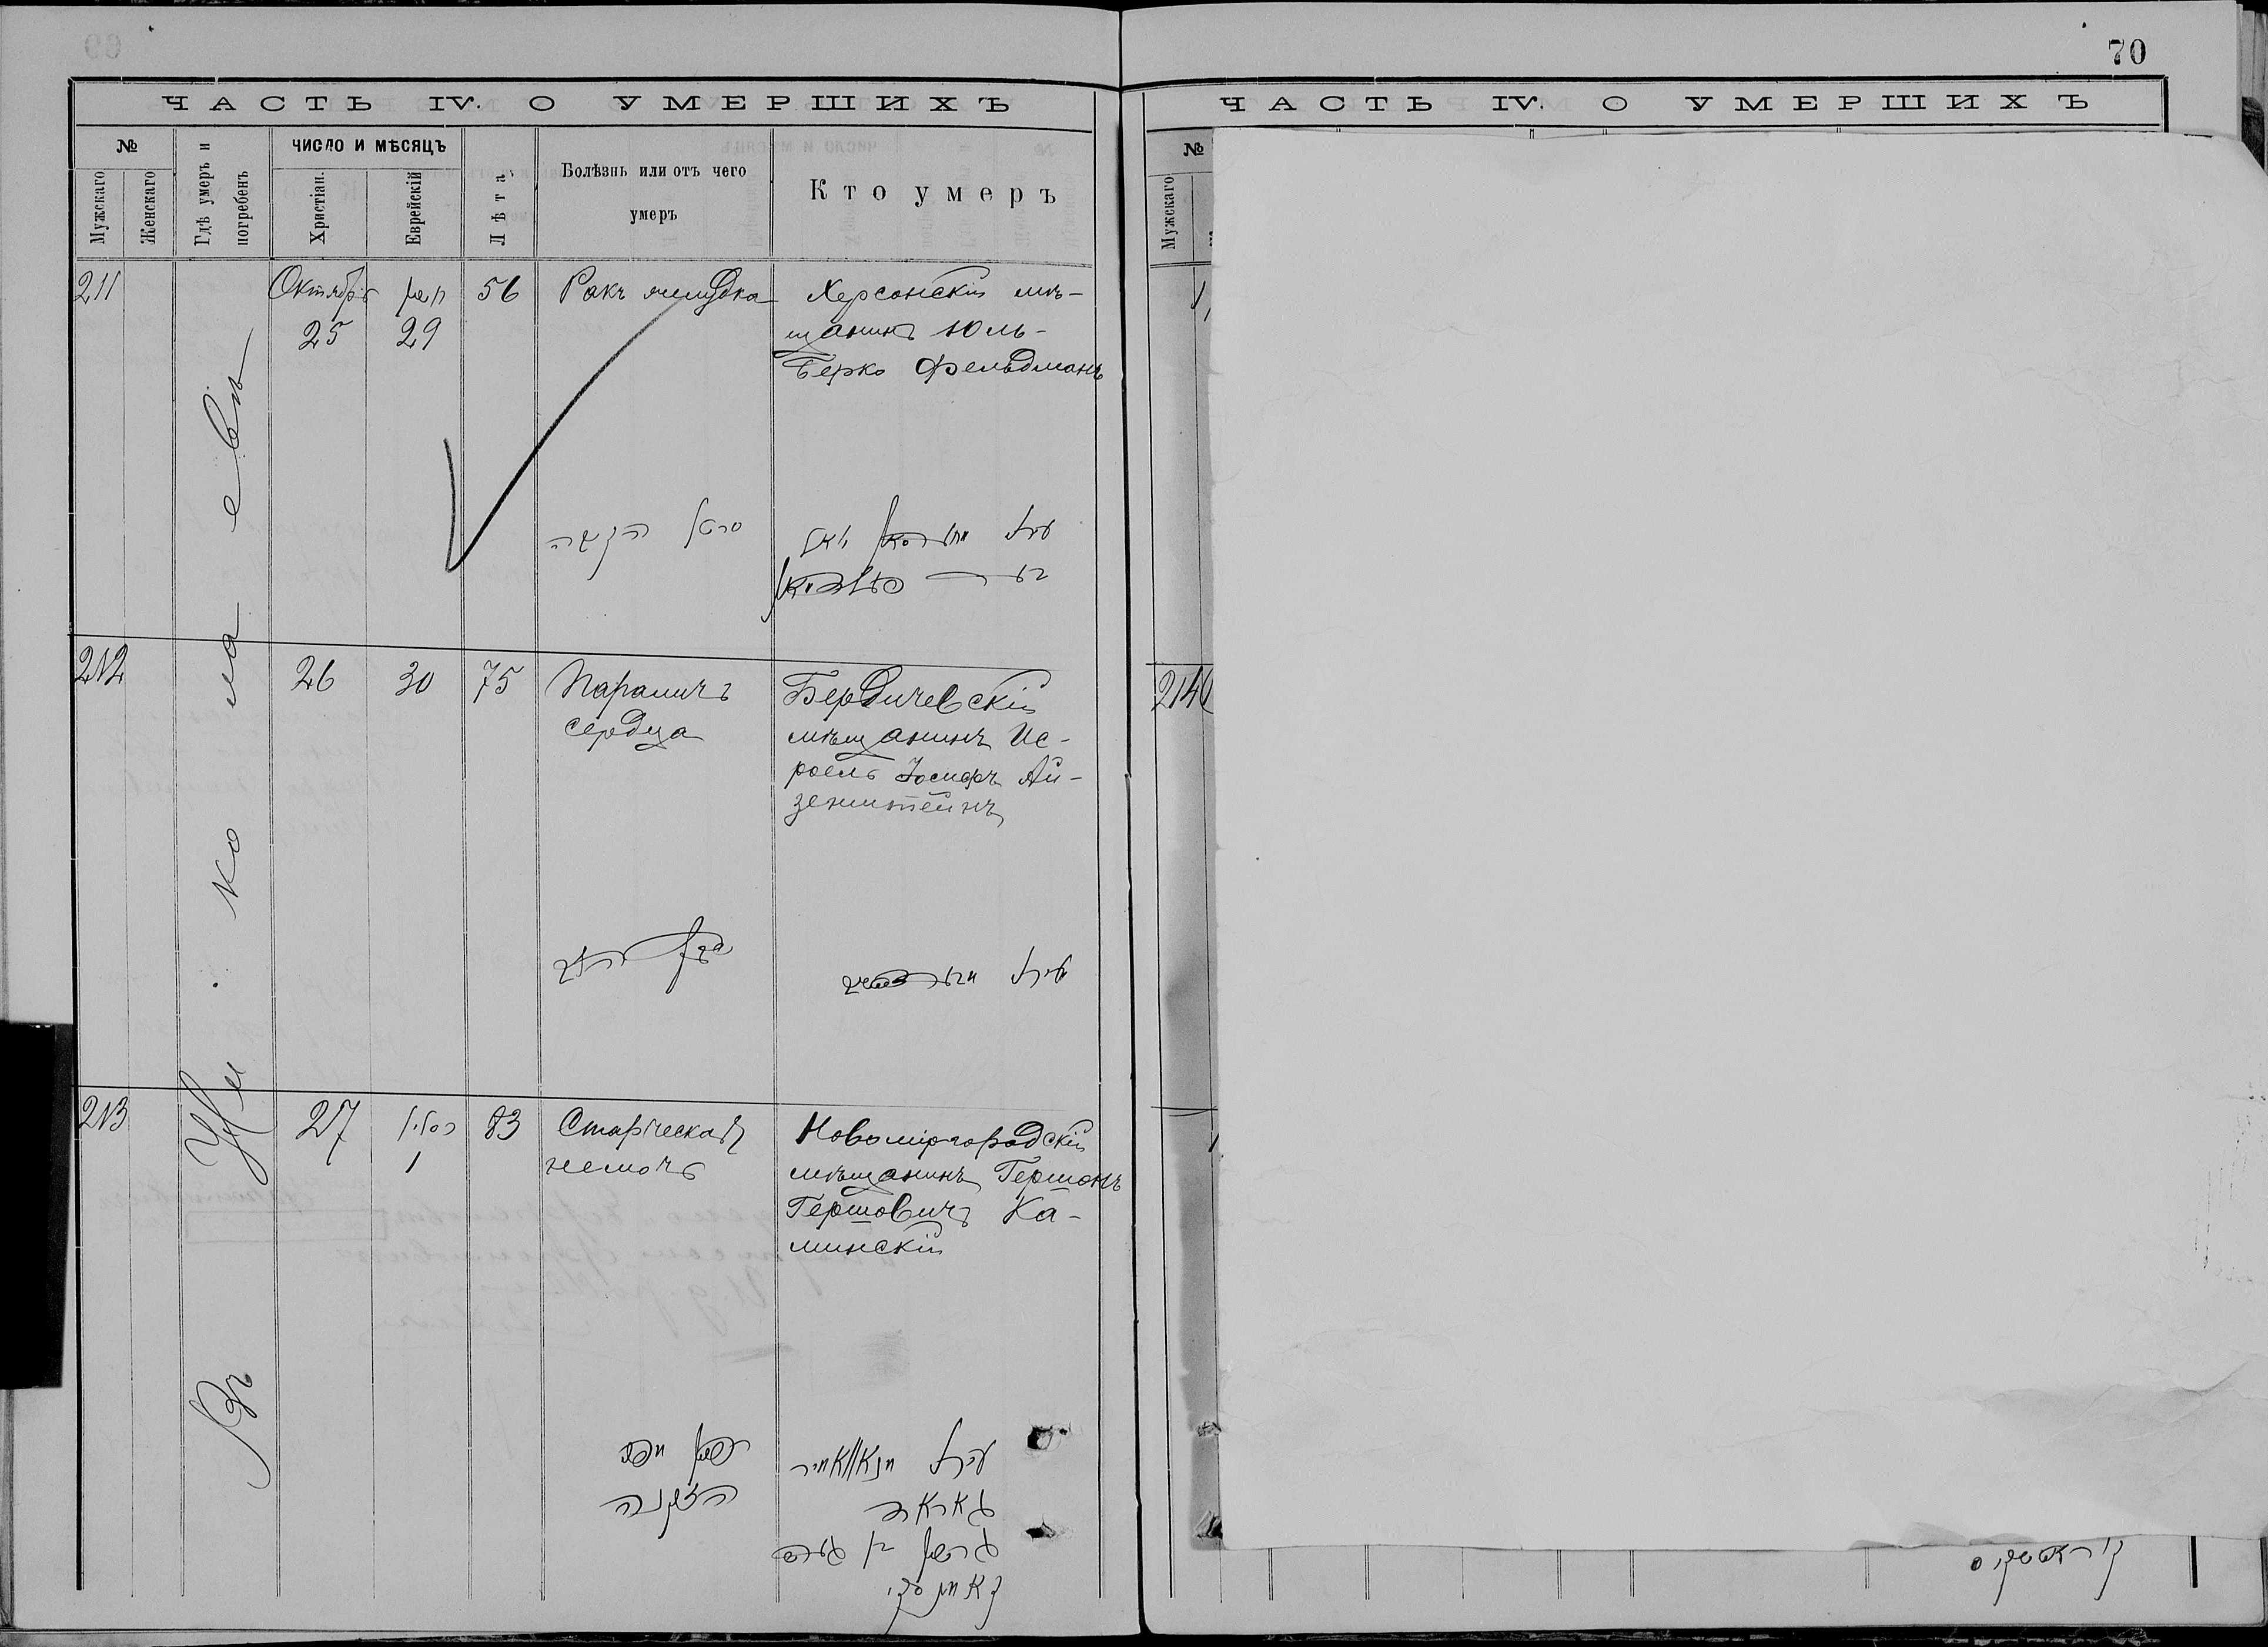 70
ЧАСТЬ IV. О УМЕРШИХЪ
№
Мужскаго
Женскаго
Гдѣ умеръ и погребенъ
ЧИСЛО И МѢСЯЦЪ
Христіан.
Еврейскій
Лѣта
Болѣзнь или отъ чего
умеръ
Кто умеръ
Въ г. Николаевѣ
211
Октября
25
חשון
29
56
Ракъ желудка
Херсонскій мѣ-
щанинъ Юль-
Берко Фельдманъ
סרטן הקיבה
פעלדמאן
212
26
30
75
Параличъ
сердца
Бердичевскій
мѣщанинъ Ис-
роель Іосифъ Ай-
зенштейнъ
213
27
כסלו
1
83
Старческая
немочь
Новомиргородскій
мѣщанинъ Гершонъ
Гершовичъ Ка-
минскій
הזקנה
גאראד
גרשון בן גערש
קאמינסקי
ЧАСТЬ IV. О УМЕРШИХЪ
№
Мужскаго
214